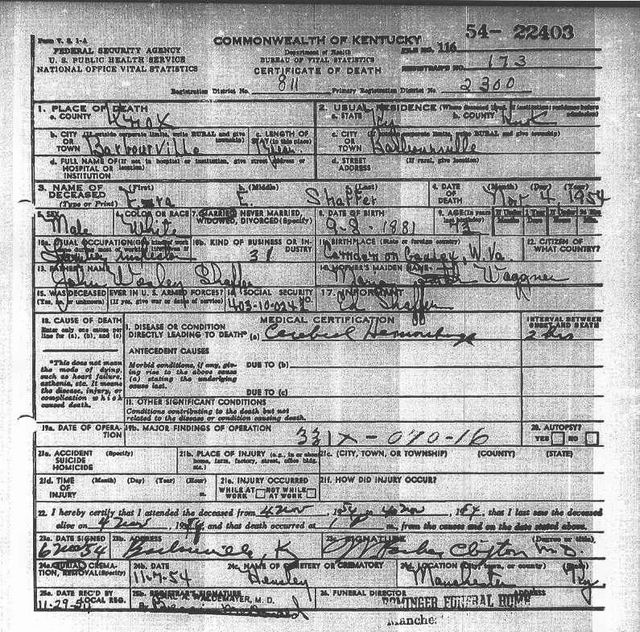 Form V. S. 1-A
54- 22403
COMMONWEALTH OF KENTUCKY
FEDERAL SECURITY AGENCY
U. S. PUBLIC HEALTH SERVICE
NATIONAL OFFICE VITAL STATISTICS
Department of Health
BUREAU OF VITAL STATISTICS
CERTIFICATE OF DEATH
FILE NO. 116
REGISTRAR'S NO. 173
Registration District No. 811 Primary Registration District No. 2300
1. PLACE OF DEATH
a. COUNTY Knox
2. USUAL RESIDENCE (Where deceased lived. If institution: residence before admission)
a. STATE Ky b. COUNTY Knox
b. CITY (If outside corporate limits, write RURAL and give township) OR TOWN Barbourville
c. LENGTH OF STAY (in this place)
c. CITY (If outside corporate limits, write RURAL and give township) OR TOWN Barbourville
d. FULL NAME OF (If not in hospital or institution, give street address or location) HOSPITAL OR INSTITUTION
d. STREET ADDRESS (If rural, give location)
3. NAME OF DECEASED (Type or Print) (First) Ezra (Middle) E. (Last) Shaffer
4. DATE OF DEATH (Month) (Day) (Year) Nov 4, 1954
5. SEX Male
6. COLOR OR RACE White
7. MARRIED, NEVER MARRIED, WIDOWED, DIVORCED (Specify)
8. DATE OF BIRTH 9-8-1881
9. AGE (In years last birthday) 73
10a. USUAL OCCUPATION
10b. KIND OF BUSINESS OR INDUSTRY 31
11. BIRTHPLACE (State or foreign country) Camden on Gauley, W. Va
12. CITIZEN OF WHAT COUNTRY?
13. FATHER'S NAME John Wesley Shaffer
14. MOTHER'S MAIDEN NAME Waggner
15. WAS DECEASED EVER IN U. S. ARMED FORCES? (Yes, no, or unknown) (If yes, give war or dates of service)
16. SOCIAL SECURITY NO.
17. INFORMANT Shaffer
18. CAUSE OF DEATH
Enter only one cause per line for (a), (b), and (c)
MEDICAL CERTIFICATION
INTERVAL BETWEEN ONSET AND DEATH
I. DISEASE OR CONDITION DIRECTLY LEADING TO DEATH* (a) Cerebral Hemorrhage 2 hrs
*This does not mean the mode of dying, such as heart failure, asthenia, etc. It means the disease, injury, or complication which caused death.
ANTECEDENT CAUSES
Morbid conditions, if any, giving rise to the above cause (a) stating the underlying cause last.
DUE TO (b)
DUE TO (c)
II. OTHER SIGNIFICANT CONDITIONS
Conditions contributing to the death but not related to the disease or condition causing death.
19a. DATE OF OPERATION
19b. MAJOR FINDINGS OF OPERATION
331X-070-16
20. AUTOPSY? YES NO
21a. ACCIDENT SUICIDE HOMICIDE (Specify)
21b. PLACE OF INJURY (e.g., in or about home, farm, factory, street, office bldg. etc.)
21c. (CITY, TOWN, OR TOWNSHIP) (COUNTY) (STATE)
21d. TIME OF INJURY (Month) (Day) (Year) (Hour) m.
21e. INJURY OCCURRED WHILE AT WORK NOT WHILE AT WORK
21f. HOW DID INJURY OCCUR?
22. I hereby certify that I attended the deceased from 4 Nov, 1954, to 4 Nov, 1954, that I last saw the deceased
alive on 4 Nov, 1954, and that death occurred at m., from the causes and on the date stated above.
23a. DATE SIGNED 6 Nov 54
23b. ADDRESS Barbourville, K
23c. SIGNATURE Clifton M.D. (Degree or title)
24a. BURIAL, CREMATION, REMOVAL (Specify)
24b. DATE 11-7-54
24c. NAME OF CEMETERY OR CREMATORY Hensley
24d. LOCATION (City, town, or county) (State) Manchester Ky
25a. DATE REC'D BY LOCAL REG. 11-29-54
25b. REGISTRAR'S SIGNATURE
WALDEMAYER, M. D.
26. FUNERAL DIRECTOR ADDRESS
ROMINGER FUNERAL HOME
Manche